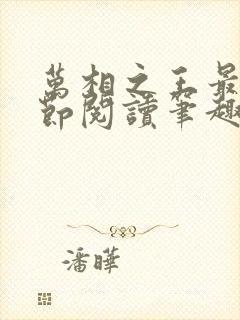 萬相之王最
節閱讀筆趣
潘曄